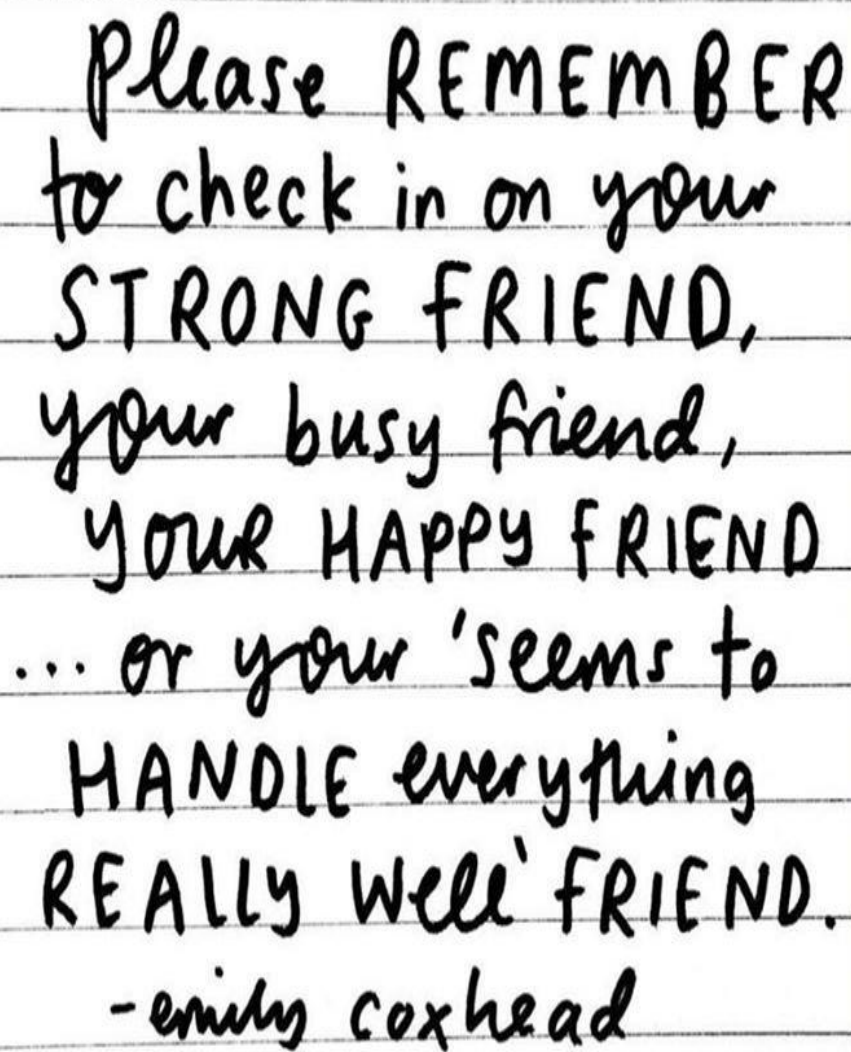 Please REMEMBER
to check in on your
STRONG FRIEND,
your busy friend,
YOUR HAPPY FRIEND
... or your 'seems to
HANDLE everything
REALLY Well' FRIEND.
-emily coxhead